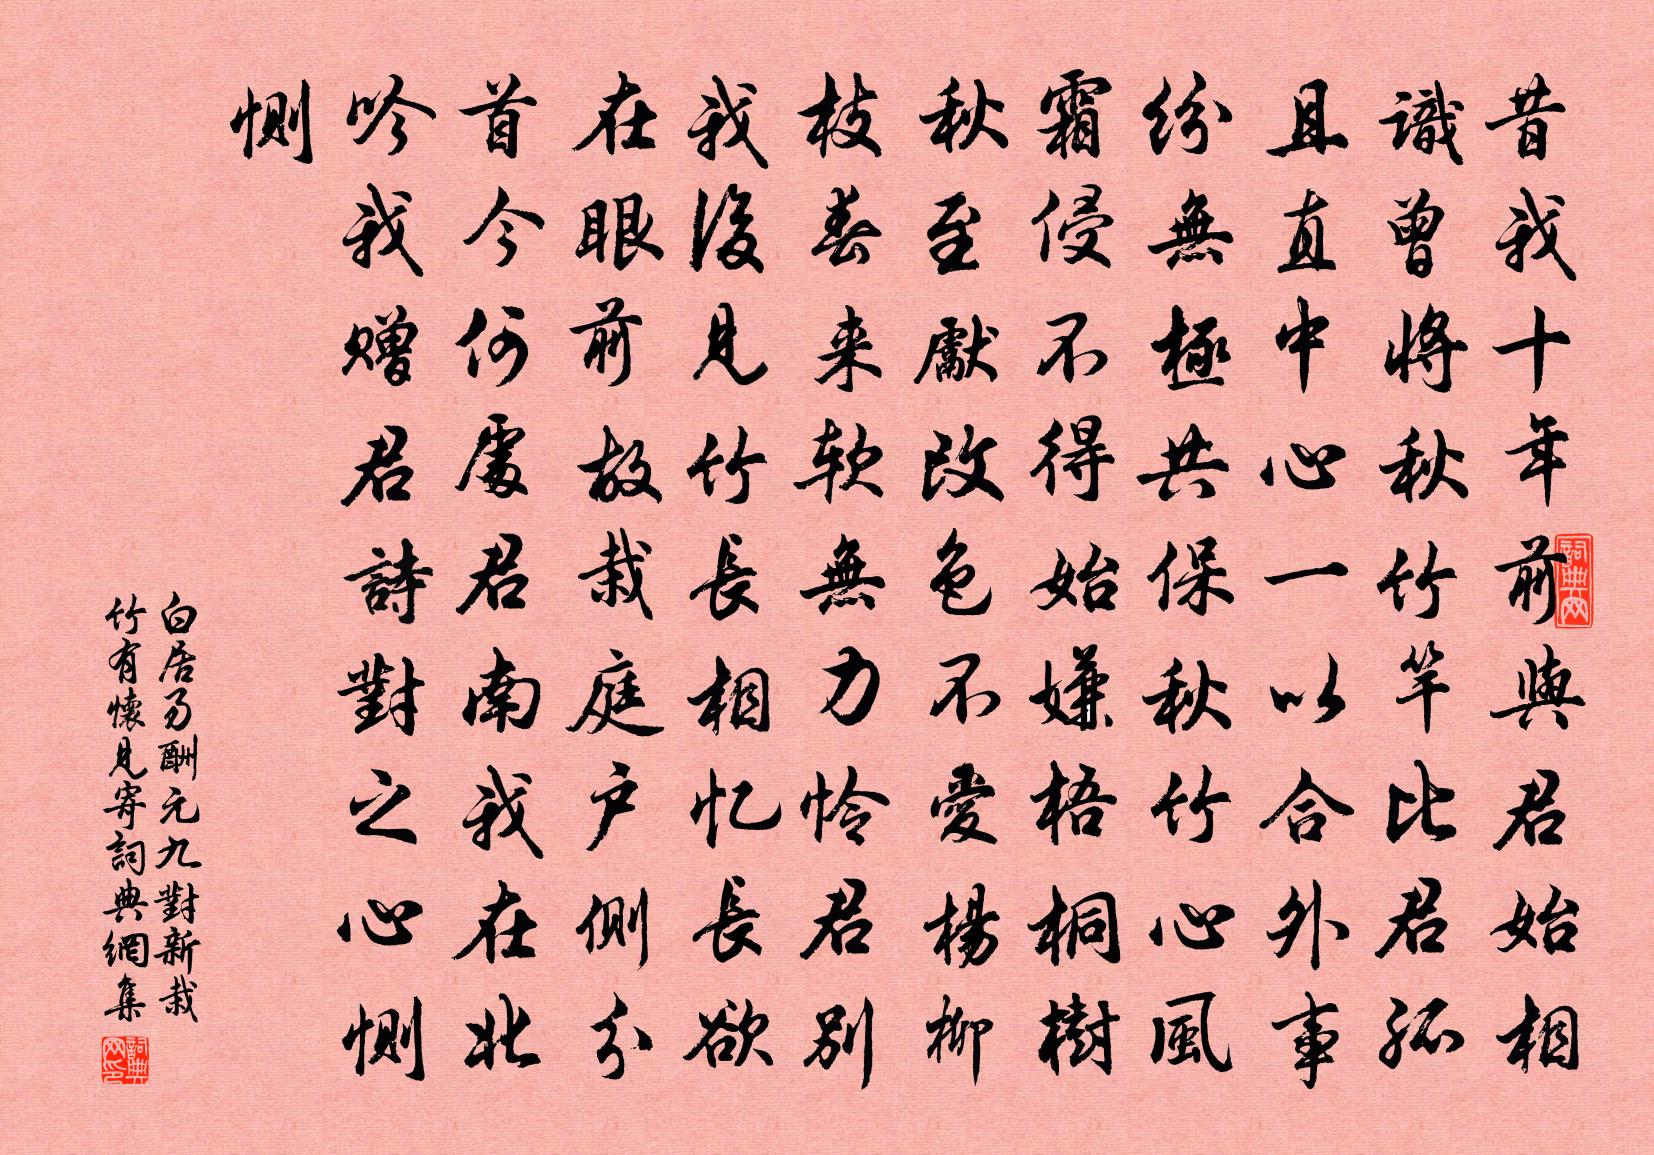 昔我十年前與君始相
識曾將秋竹竿比君孤
且直中心一以合外事
紛無極共保秋竹心風
霜侵不得始嫌梧桐樹
秋至獻改色不愛楊柳
枝春来软無力怜君别
我後見竹長相忆長欲
在眼前故栽庭户側分
首今何處君南我在北
吟我赠君詩對之心惻
惻
白居易酬元九對新栽
竹有懷見寄詞典網集
詞典网
詞典网印